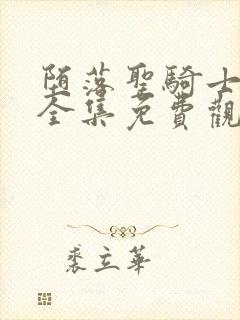 堕落聖騎士
全集免費觀
裘立華